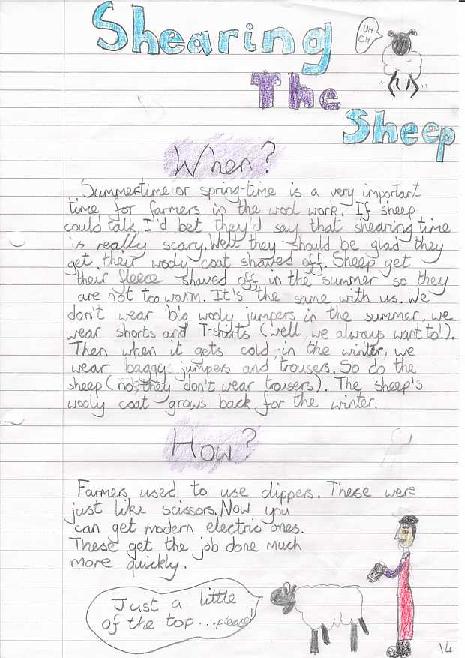 Shearing
UH OH
The
Sheep
When?
Summertime or spring-time is a very important
time for farmers in the wool work. If sheep
could talk, I'd bet they'd say that shearing time
is really scary. Well they should be glad they
get their wooly coat shaved off. Sheep get
their fleece shaved off in the summer so they
are not too warm. It's the same with us. We
don't wear big wooly jumpers in the summer, we
wear shorts and T-shirts (well we always want to!).
Then when it gets cold, in the winter, we
wear baggy jumpers and trousers. So do the
sheep (no, they don't wear trousers). The sheep's
wooly coat grows back for the winter.
How?
Farmers used to use clippers. These were
just like scissors. Now you
can get modern electric ones.
These get the job done much
more quickly.
Just a little
of the top...please!
14